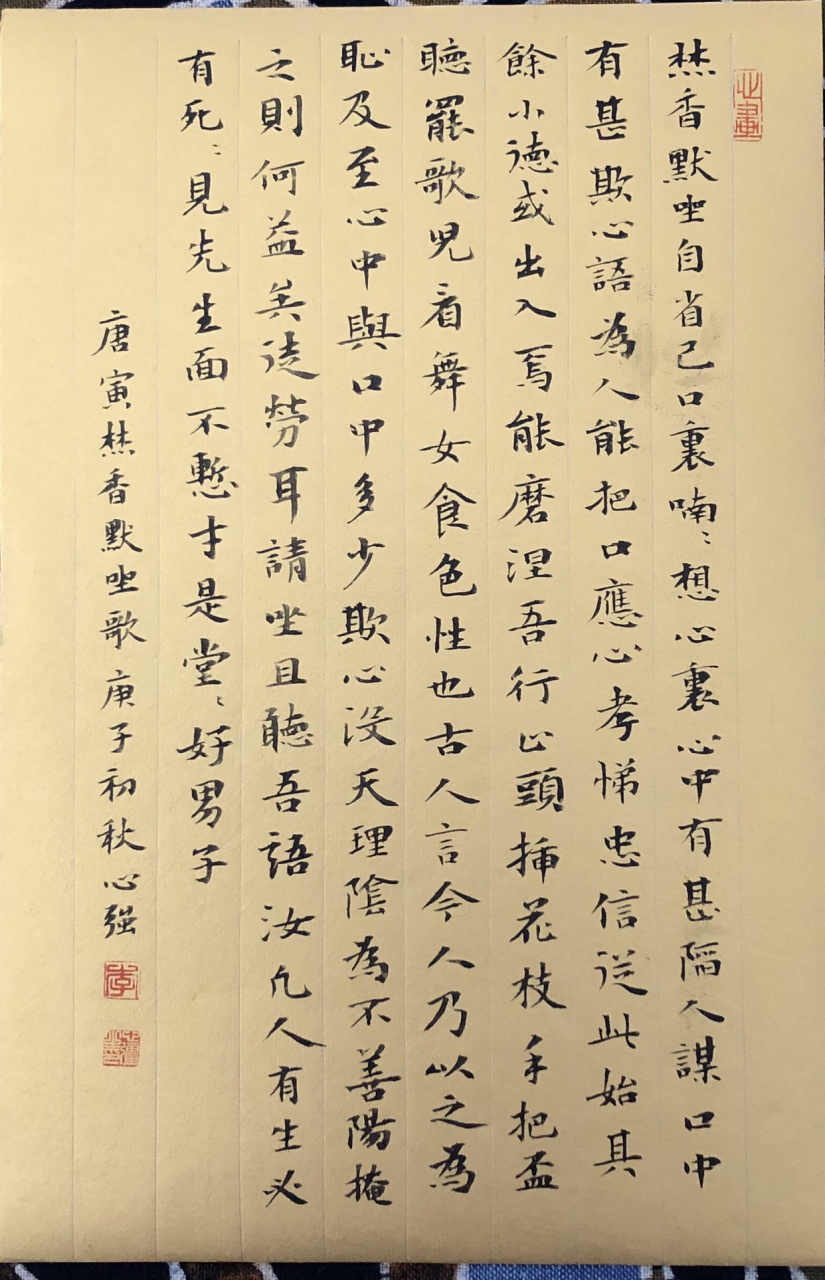 焚香默坐自省己口裏喃〻想心裏心中有甚陷人謀口中
有甚欺心語為人能把口應心孝悌忠信從此始其
餘小德或出入焉能磨涅吾行止頭插花枝手把盃
聽罷歌兒看舞女食色性也古人言今人乃以之為
恥及至心中與口中多少欺心沒天理陰為不善陽掩
之則何益矣徒勞耳請坐且聽吾語汝凡人有生必
有死〻見先生面不慙才是堂〻好男子
唐寅焚香默坐歌庚子初秋心強